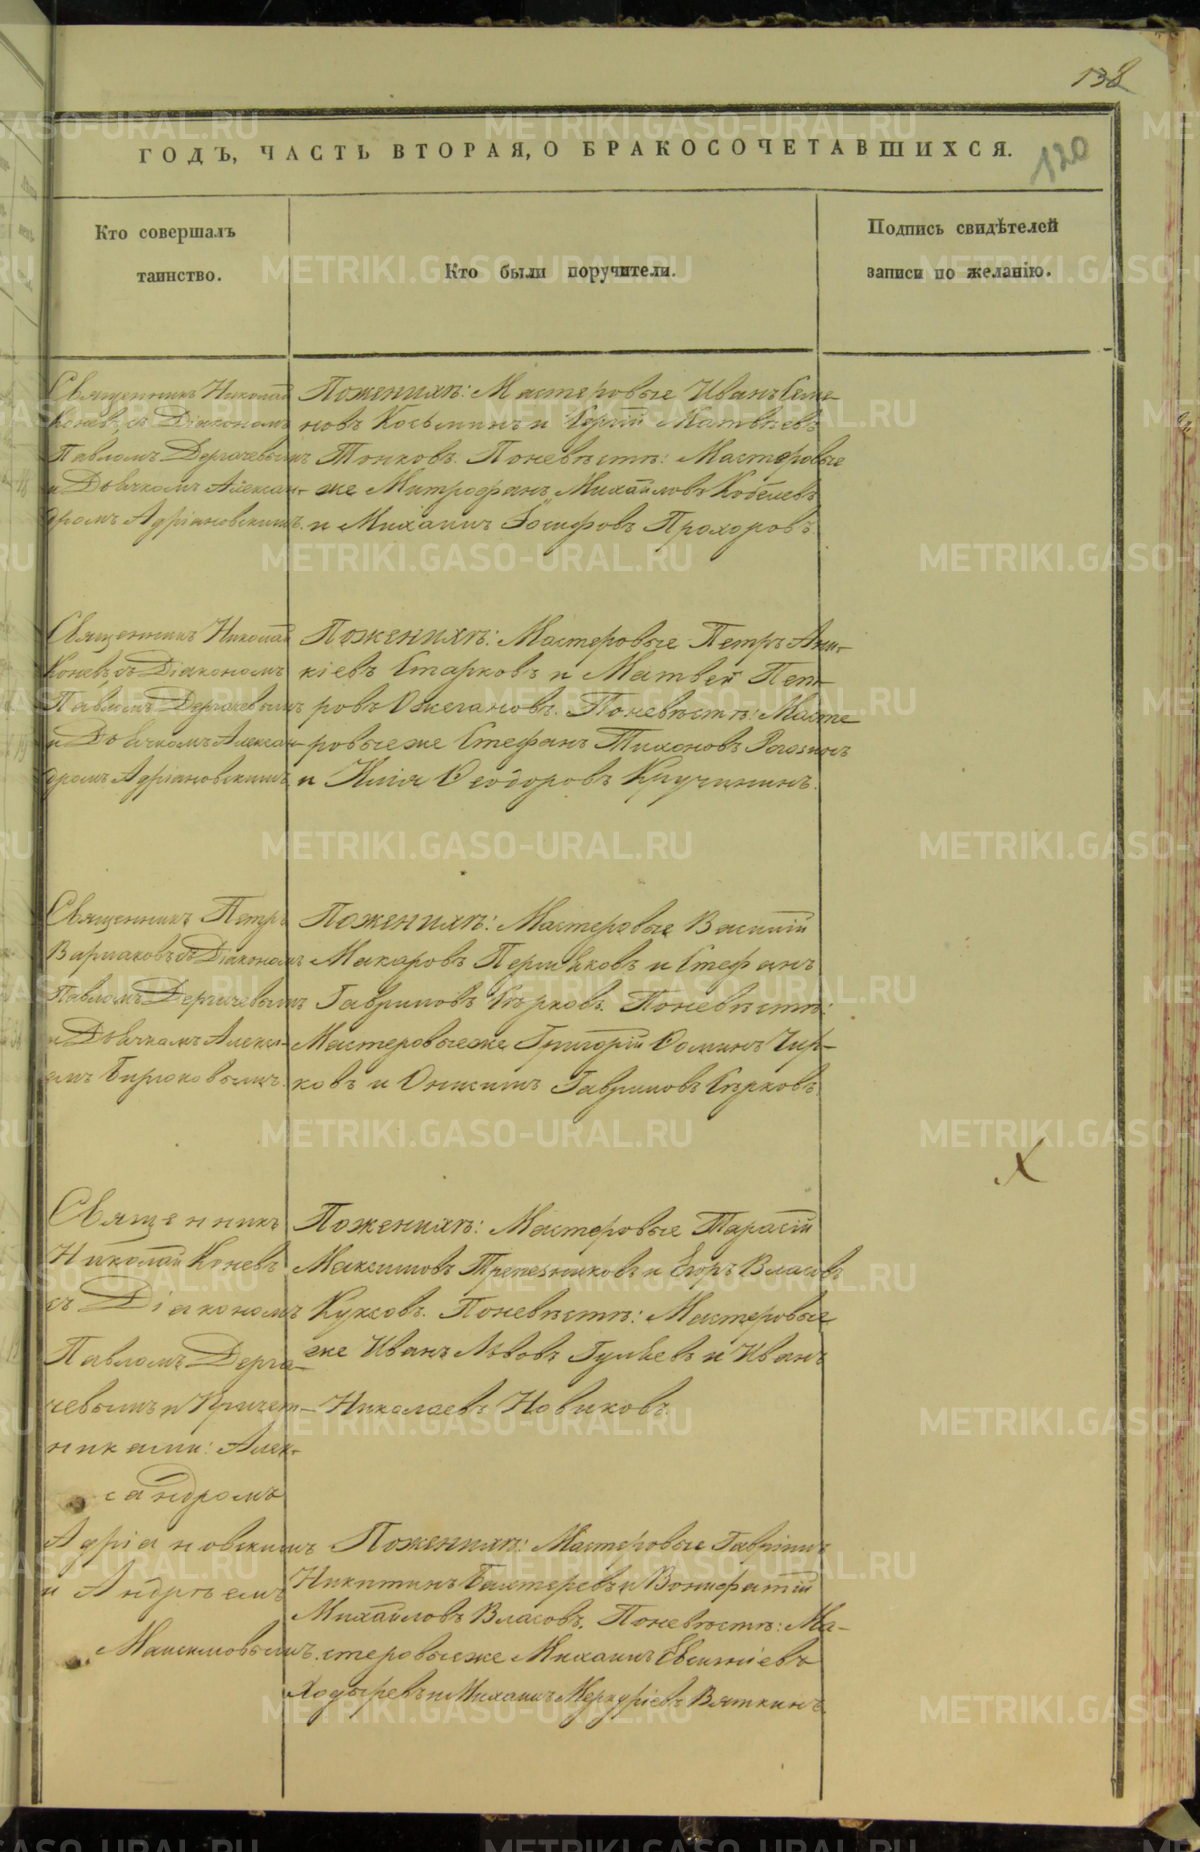 138
ГОДЪ, ЧАСТЬ ВТОРАЯ, О БРАКОСОЧЕТАВШИХСЯ.
120
Кто совершалъ
таинство.
Кто были поручители.
Подпись свидѣтелей
записи по желанію.
Священникъ Николай
Коневъ съ Діакономъ
Павломъ Дергачевымъ
и Дьячкомъ Алексан-
дромъ Адріановскимъ.
По женихѣ: Мастеровые Иванъ Семе-
новъ Косьминъ и Сергій Матвѣевъ
Тонковъ. По невѣстѣ: Мастеровые
же Митрофанъ Михайловъ Кобелевъ
и Михаилъ Іосифовъ Прохоровъ.
Священникъ Николай
Коневъ съ Діакономъ
Павломъ Дергачевымъ
и Дьячкомъ Алексан-
дромъ Адріановскимъ
По женихѣ: Мастеровые Петръ Ани-
кіевъ Старковъ и Матвей Пет-
ровъ Ожегановъ. По невѣстѣ: Масте
ровые же Стефанъ Тихоновъ Рогозинъ
и Илія Ѳеодоровъ Кручининъ.
Священникъ Петръ
Варлаковъ съ Діакономъ
Павломъ Дергачевымъ
и Дьячкамъ Алексѣ-
емъ Бирюковымъ.
По женихѣ: Мастеровые Василій
Макаровъ Пермяковъ и Стефанъ
Гавриловъ Сѣрковъ. По невѣстѣ:
Мастеровые же Григорій Ѳоминъ Чир-
ковъ и Онисимъ Гавриловъ Сѣрковъ.
Священникъ
Николай Коневъ
съ Діакономъ
Павломъ Дерга-
чевымъ и Причет-
никами: Алек-
сандромъ
Адріановскимъ
и Андреемъ
Максимовымъ.
По женихѣ: Мастеровые Тарасій
Максимовъ Трапезниковъ и Егоръ Власовъ
Куксовъ. По невѣстѣ: Мастеровые
же Иванъ Львовъ Гуляевъ и Иванъ
Николаевъ Новиковъ.
По женихѣ: Мастеровые Гавріилъ
Никитинъ Бахтеревъ и Вонифатій
Михайловъ Власовъ. По невѣстѣ: Ма-
стеровые же Михаилъ Евсигніевъ
Ходыревъ и Михаилъ Меркуріевъ Вяткинъ.
METRIKI.GASO-URAL.RU